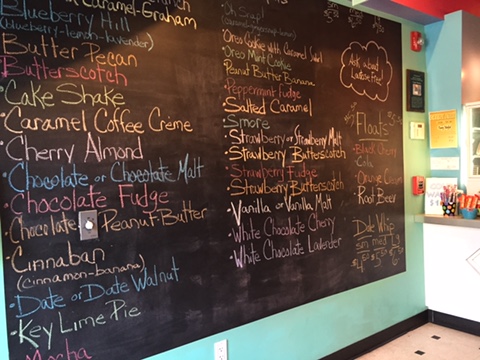 Caramel-Graham
Blueberry Hill
(blueberry-lemon-lavender)
Butter Pecan
Butterscotch
Cake Shake
Caramel Coffee Crème
Cherry Almond
Chocolate or Chocolate Malt
Chocolate Fudge
Chocolate Peanut-Butter
Cinnaban
(cinnamon-banana)
Date or Date Walnut
Key Lime Pie
Mocha
Oh Snap!
Oreo Cookie with Caramel Swirl
Oreo Mint Cookie
Peanut Butter Banana
Peppermint Fudge
Salted Caramel
Smore
Strawberry or Strawberry Malt
Strawberry Butterscotch
Strawberry Fudge
Strawberry Butterscotch
Vanilla or Vanilla Malt
White Chocolate Cherry
White Chocolate Lavender
Ask about
Lactose Free!
Floats
Black Cherry
Cola
Orange Creme
Root Beer
Dole Whip
sm med lg